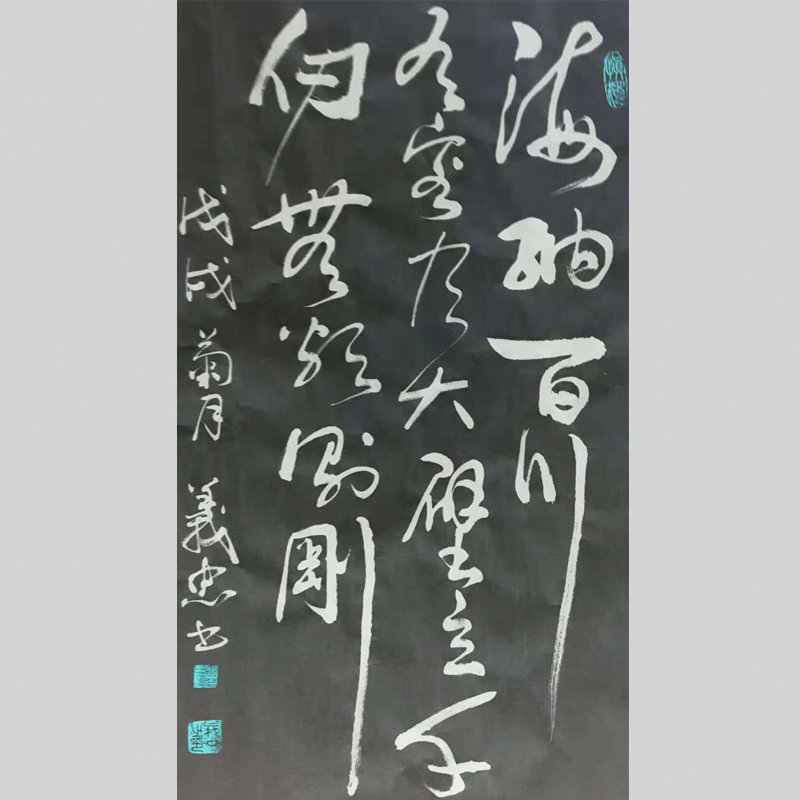 海纳百川
有容乃大壁立千
仞無欲則剛
戊戌菊月義忠书